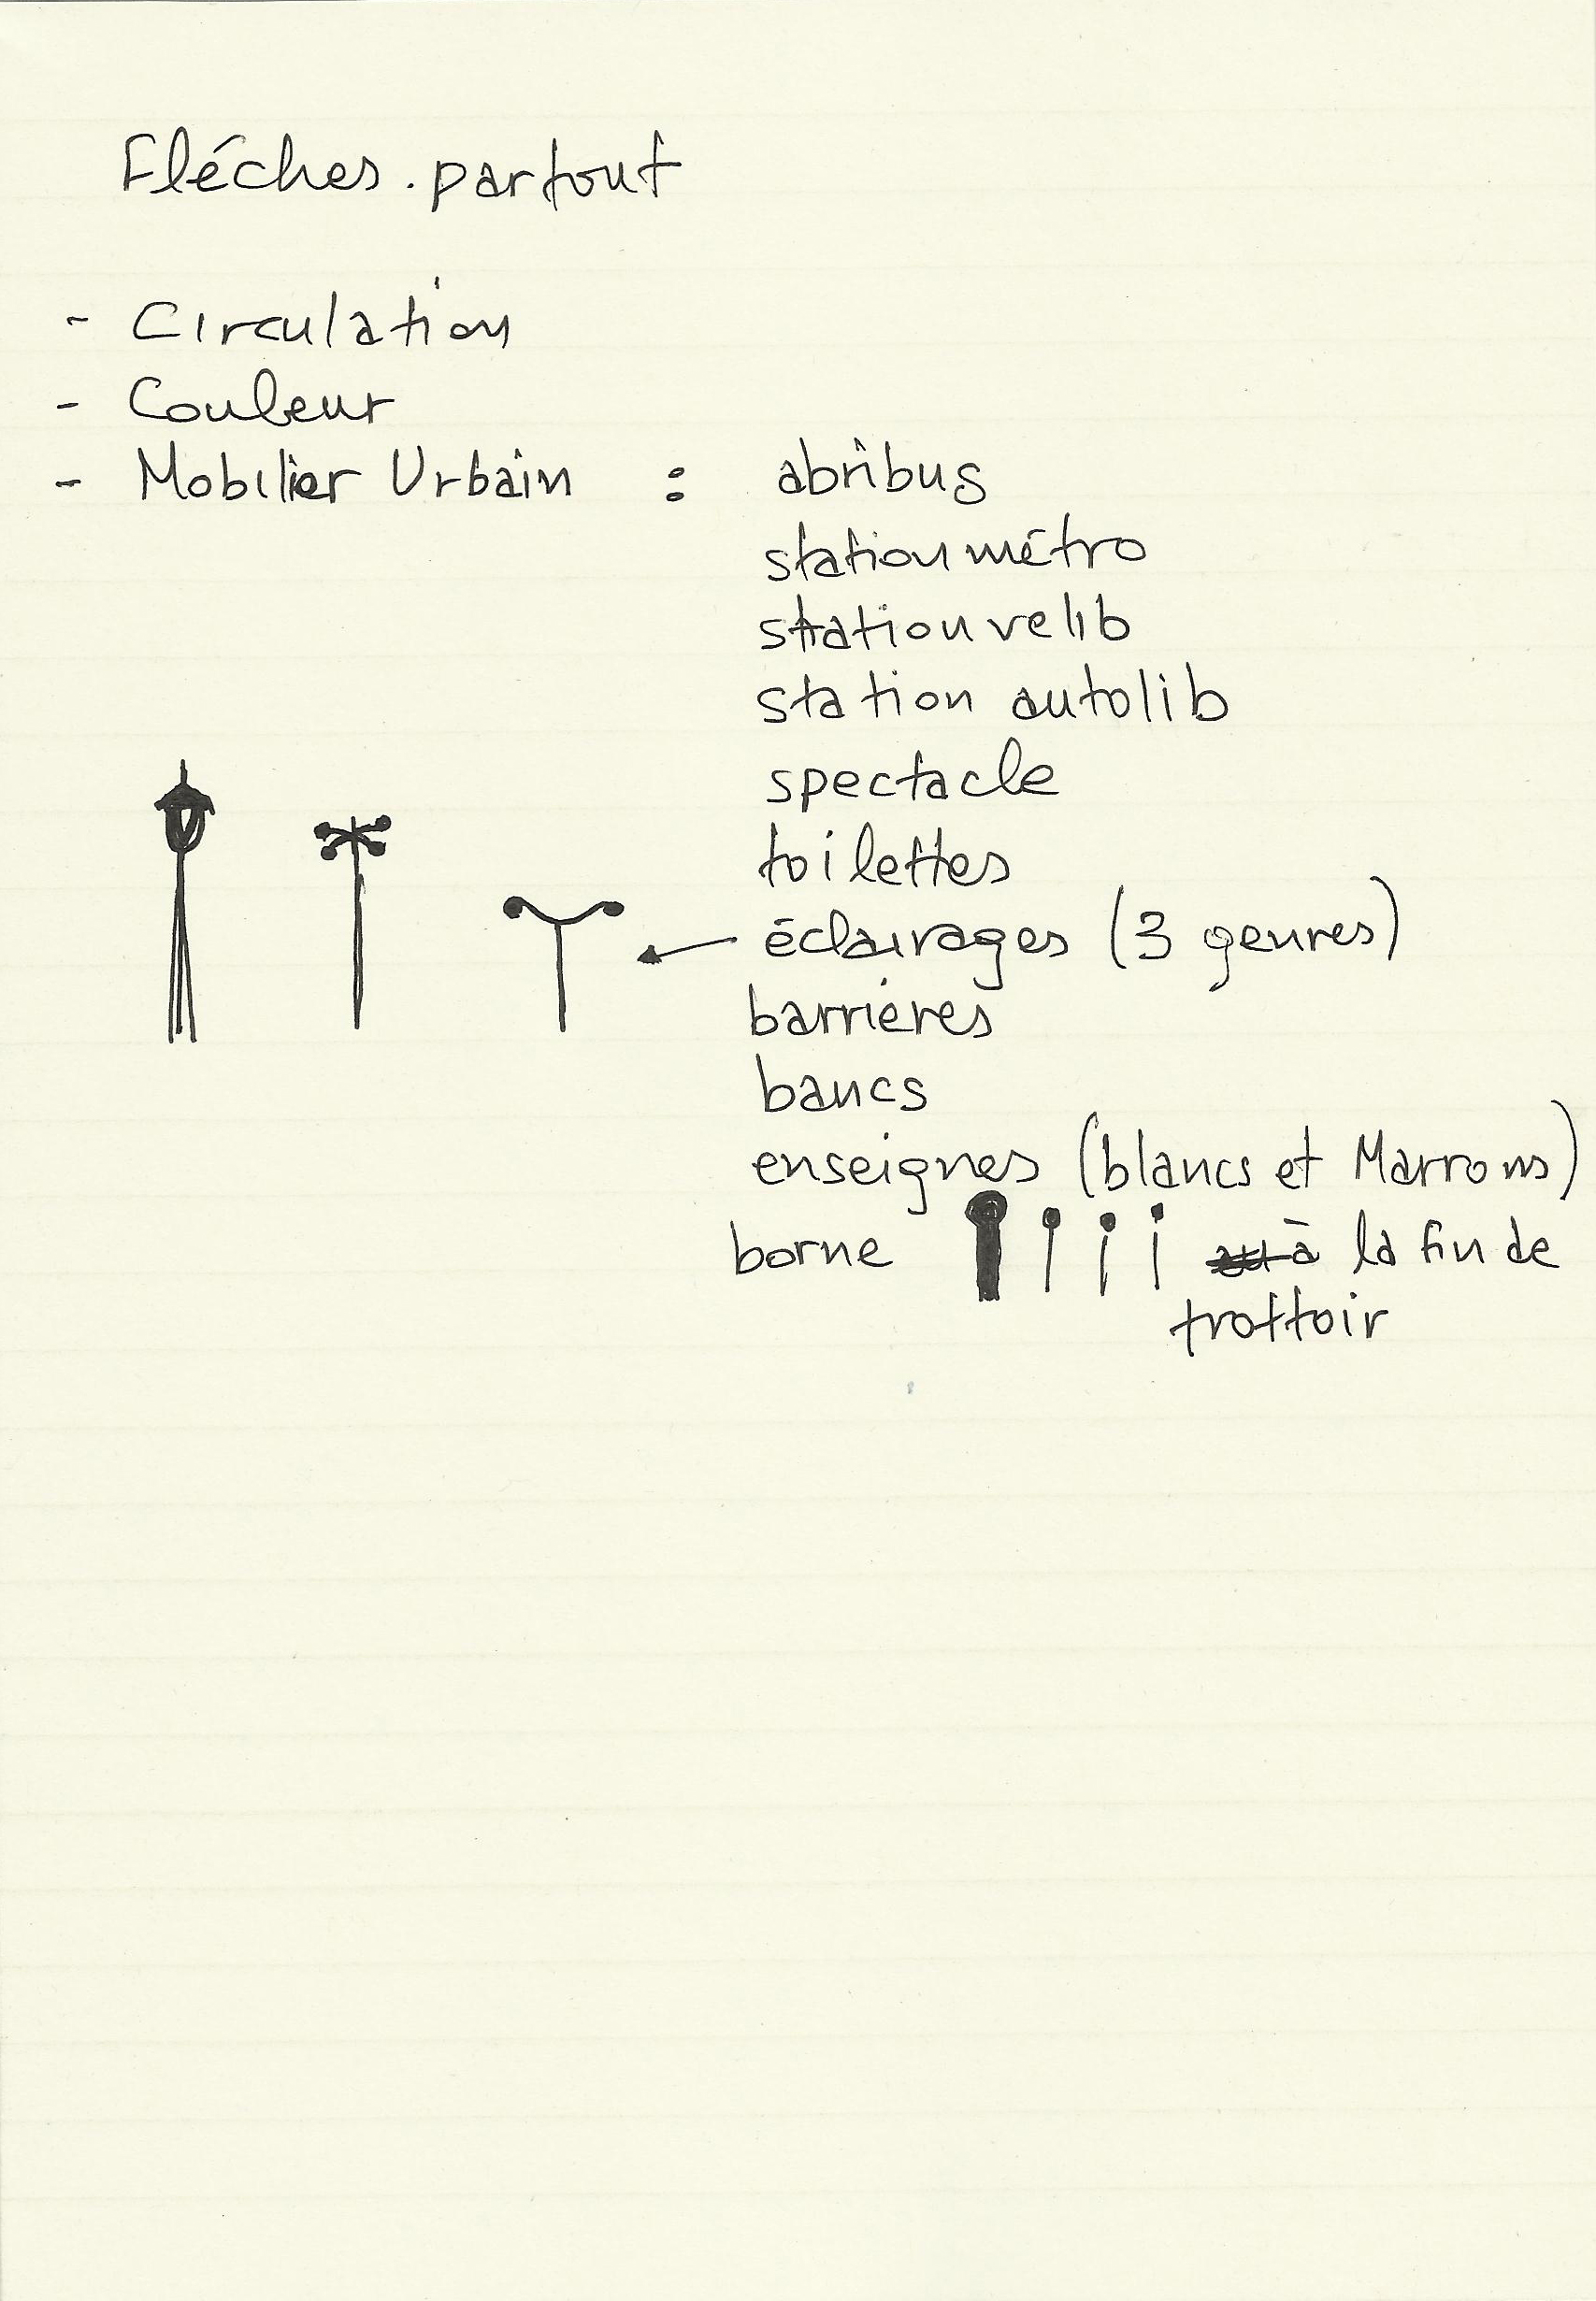 Fléches. partout
- Circulation
- Couleur
- Mobilier Urbain : abribus
station métro
station velib
station autolib
spectacle
toilettes
éclairages (3 genres)
barrières
bancs
enseignes (blancs et Marrons)
borne à la fin de
trottoir